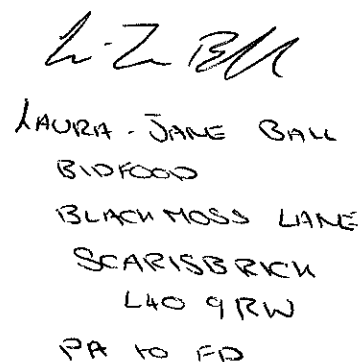 LAURA-JANE BALL
BIDFOOD
BLACK MOSS LANE
SCARISBRICK
L40 9RW
PA TO FD